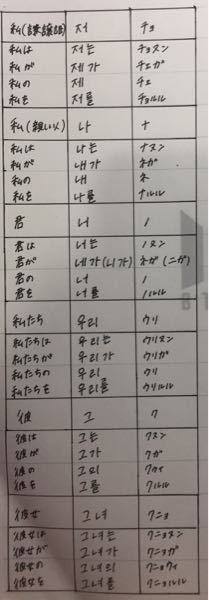 私(謙譲語) 저 チョ
私は 저는 チョヌン
私が 제가 チェガ
私の 제 チェ
私を 저를 チョルル
私(親しい) 나 ナ
私は 나는 ナヌン
私が 내가 ネガ
私の 내 ネ
私を 나를 ナルル
君 너 ノ
君は 너는 ノヌン
君が 네가(니가) ネガ(ニガ)
君の 너 ノ
君を 너를 ノルル
私たち 우리 ウリ
私たちは 우리는 ウリヌン
私たちが 우리가 ウリガ
私たちの 우리 ウリ
私たちを 우리를 ウリルル
彼 그 ク
彼は 그는 クヌン
彼が 그가 クガ
彼の 그의 クウィ
彼を 그를 クルル
彼女 그녀 クニョ
彼女は 그녀는 クニョヌン
彼女が 그녀가 クニョガ
彼女の 그녀의 クニョウィ
彼女を 그녀를 クニョルル